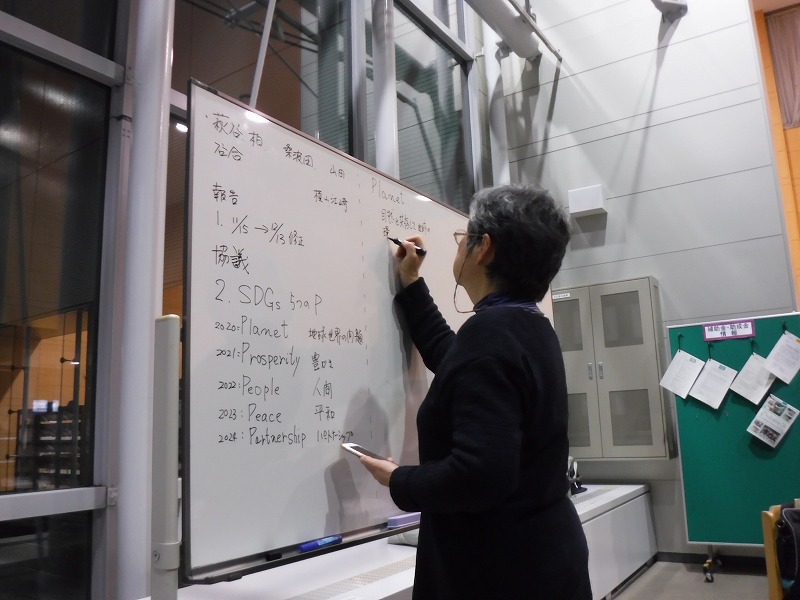 萩谷 柏 桑波田 山田
谷合
報告 横山 江崎
1. 11/15 → 12/13 修正
協議
2. SDGs 5つのP
2020: Planet 地球世界の問題
2021: Prosperity 豊かさ
2022: People 人間
2023: Peace 平和
2024: Partnership パートナーシップ
Planet
補助金・助成金
情報